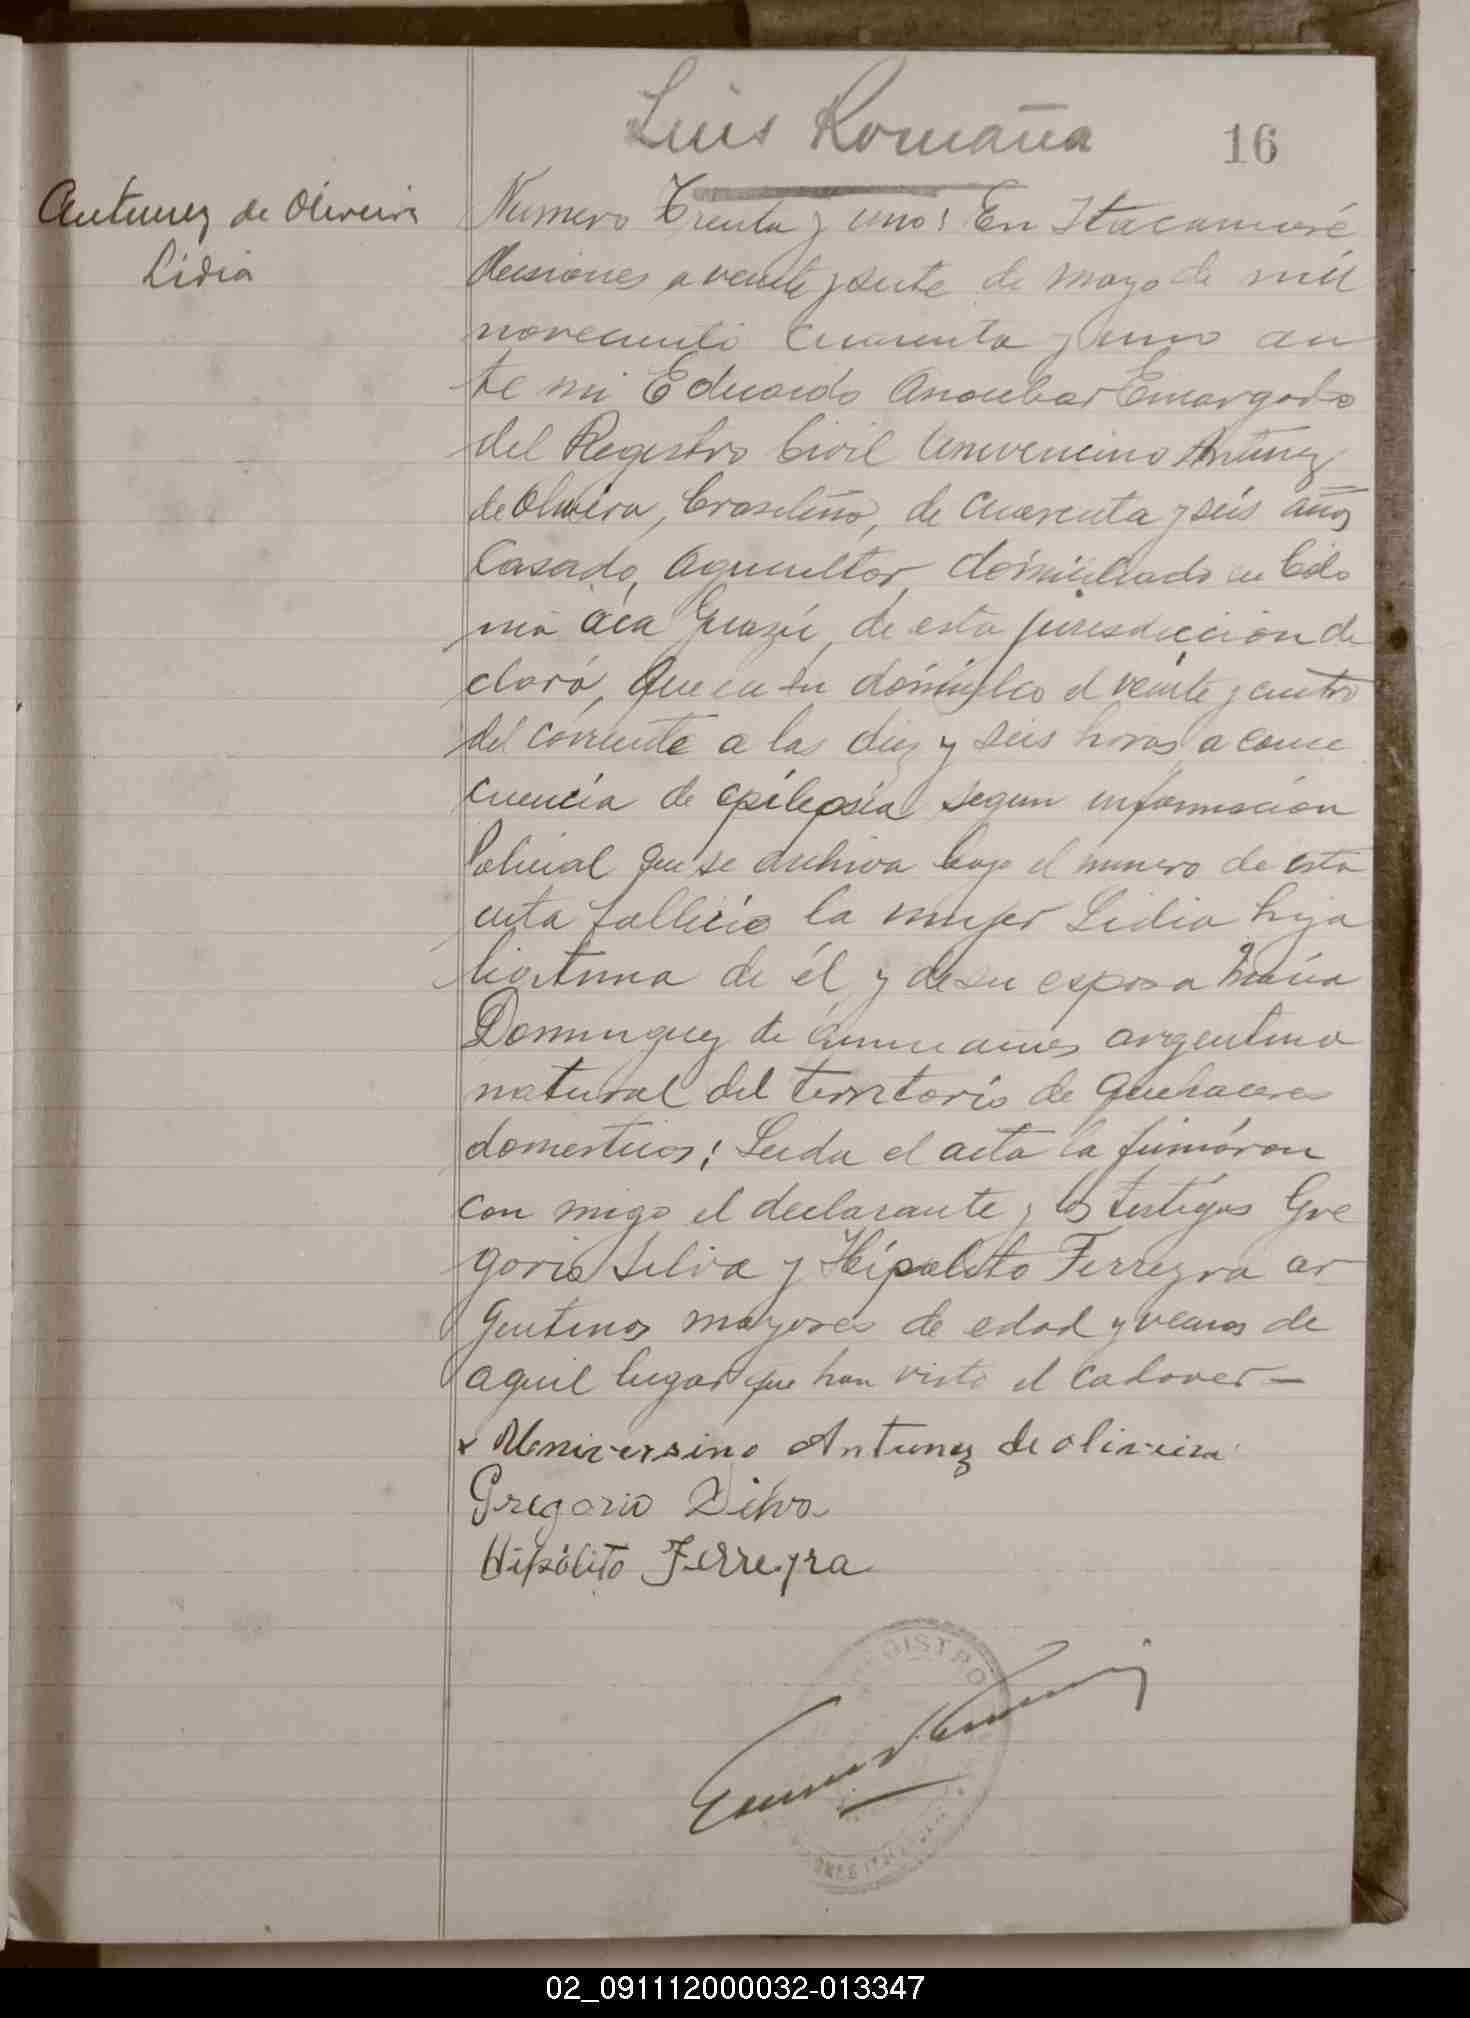 Luis Romaña
16
Antunez de Oliveira
Lidia
Numero Trenta y uno: En Itacaruaré
Misiones a veinte y siete de mayo de mil
novecientos cuarenta y uno an
te mi Eduardo Encargado
del Registro Civil Antunez
de Oliveira, brasileño, de cuarenta y seis años
Casado, Agricultor, domiciliado en Colo
nia Guazú, de esta jurisdiccion de
claró, Que en su domicilio el veinte y cuatro
del corriente a las diez y seis horas, a conse
cuencia de epilepsia segun informacion
Policial que se archiva bajo el numero de esta
acta fallecio la mujer Lidia hija
de él y de su esposa Maria
Dominguez de años argentina
natural del territorio de quehaceres
domesticos; Leida el acta la firmáron
con migo el declarante y los testigos Gre
gorio Silva y Hipolito Ferreyra ar
gentinos mayores de edad y vecinos de
aquil lugar que han visto el cadaver -
x Universino Antunez de oliveira
Gregorio Silva
Hipólito Ferreyra
REGISTRO
02_091112000032-013347